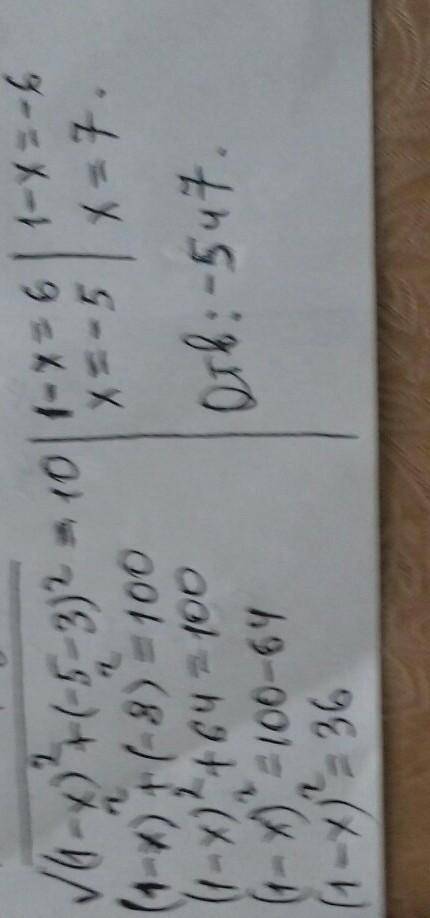 √(1-x)² + (-5-3)² = 10
(1-x)² + (-8)² = 100
(1-x)² + 64 = 100
(1-x)² = 100-64
(1-x)² = 36
1-x=6 | 1-x=-6
x=-5 | x=7.
Отв: -5 и 7.